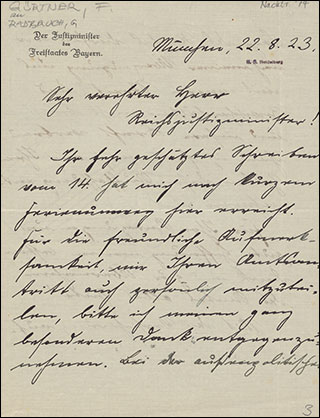 GÜRTNER, F
an
RADBRUCH, G
Nachtr. 14
Der Justizminister
des
Freistaates Bayern.
München, 22. 8. 23.
U. B. Heidelberg
Sehr verehrter Herr
Reichsjustizminister!
Ihr sehr geschätztes Schreiben
vom 14. hat mich nach kurzem
hier erreicht.
Für die freundliche Aufmerk-
samkeit, mir Ihren Amtsan-
tritt auch persönlich mitzutei-
len, bitte ich meinen ganz
besonderen Dank entgegenzu-
nehmen. Bei der außenpolitischen
3